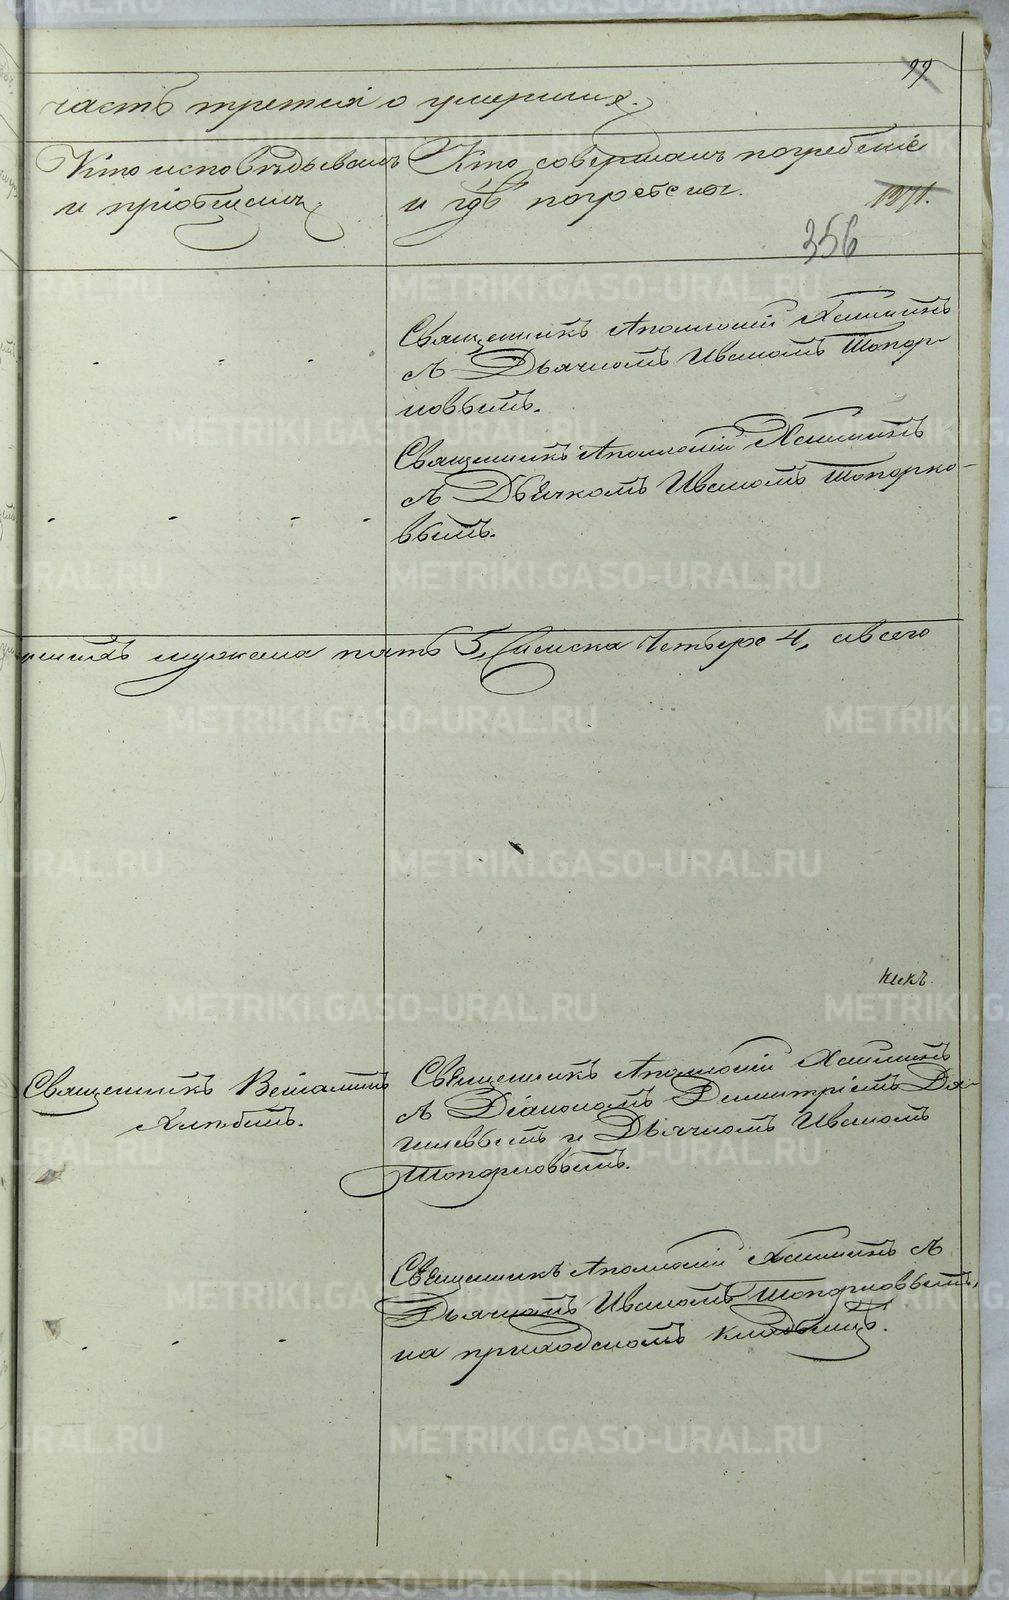 99.
часть третія о умершихъ.
Кто исповѣдывалъ
и пріобщалъ
Кто совершалъ погребеніе
и гдѣ погребены.
1871.
356
Священникъ Аполлоній
съ Дьячкомъ Иваномъ Топор-
ковымъ.
Священникъ Аполлоній
съ Дьячкомъ Иваномъ Топорко-
вымъ.
мужеска пять 5, женска четверо 4, а всего
Священникъ Веніаминъ
Хлѣбинъ.
Священникъ Аполлоній
съ Діакономъ Димитріемъ Дя-
и Дьячкомъ Иваномъ
Топорковымъ.
Священникъ Аполлоній съ
Дьячкомъ Иваномъ Топорковымъ,
на приходскомъ кладбищѣ.
METRIKI.GASO-URAL.RU